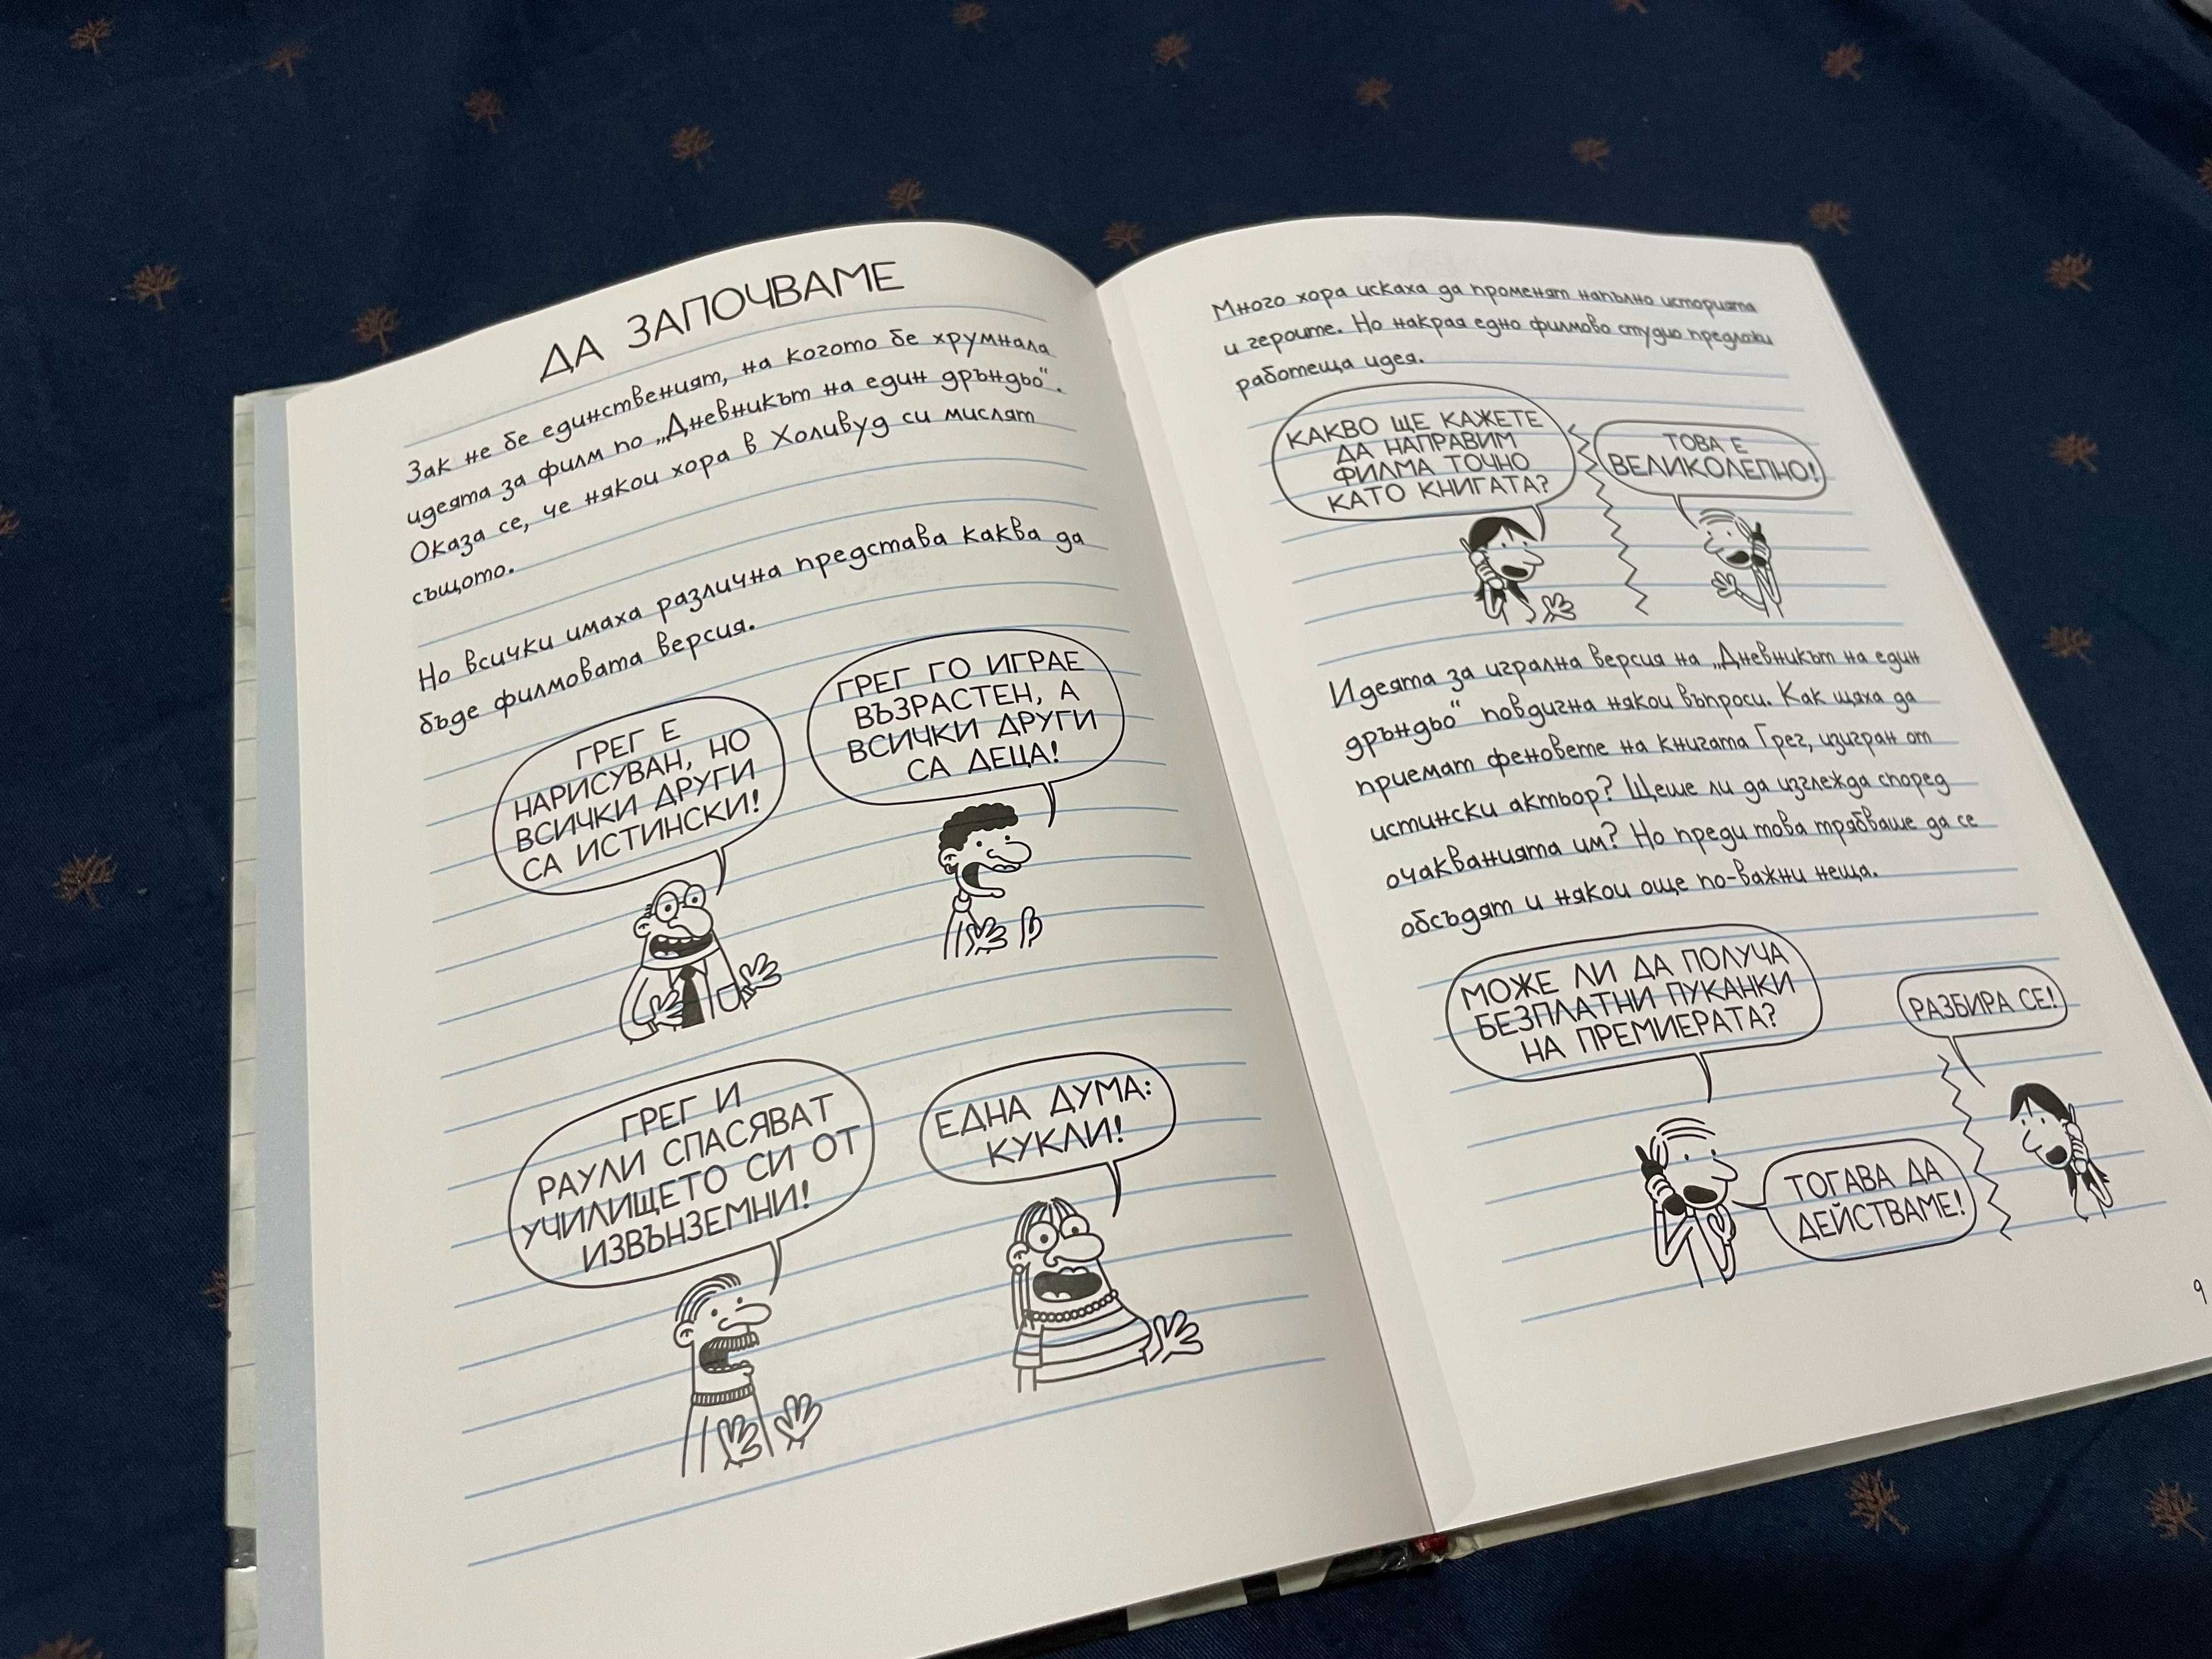 ДА ЗАПОЧВАМЕ
Зак не бе единственият, на когото бе хрумнала
идеята за филм по „Дневникът на един дръндьо“.
Оказа се, че някои хора в Холивуд си мислят
същото.
Но всички имаха различна представа каква да
бъде филмовата версия.
ГРЕГ Е
НАРИСУВАН, НО
ВСИЧКИ ДРУГИ
СА ИСТИНСКИ!
ГРЕГ ГО ИГРАЕ
ВЪЗРАСТЕН, А
ВСИЧКИ ДРУГИ
СА ДЕЦА!
ГРЕГ И
РАУЛИ СПАСЯВАТ
УЧИЛИЩЕТО СИ ОТ
ИЗВЪНЗЕМНИ!
ЕДНА ДУМА:
КУКЛИ!
Много хора искаха да променят напълно историята
и героите. Но накрая едно филмово студио предложи
работеща идея.
КАКВО ЩЕ КАЖЕТЕ
ДА НАПРАВИМ
ФИЛМА ТОЧНО
КАТО КНИГАТА?
ТОВА Е
ВЕЛИКОЛЕПНО!
Идеята за игрална версия на „Дневникът на един
дръндьо“ повдигна някои въпроси. Как щяха да
приемат феновете на книгата Грег, изигран от
истински актьор? Щеше ли да изглежда според
очакванията им? Но преди това трябваше да се
обсъдят и някои още по-важни неща.
МОЖЕ ЛИ ДА ПОЛУЧА
БЕЗПЛАТНИ ПУКАНКИ
НА ПРЕМИЕРАТА?
РАЗБИРА СЕ!
ТОГАВА ДА
ДЕЙСТВАМЕ!
9